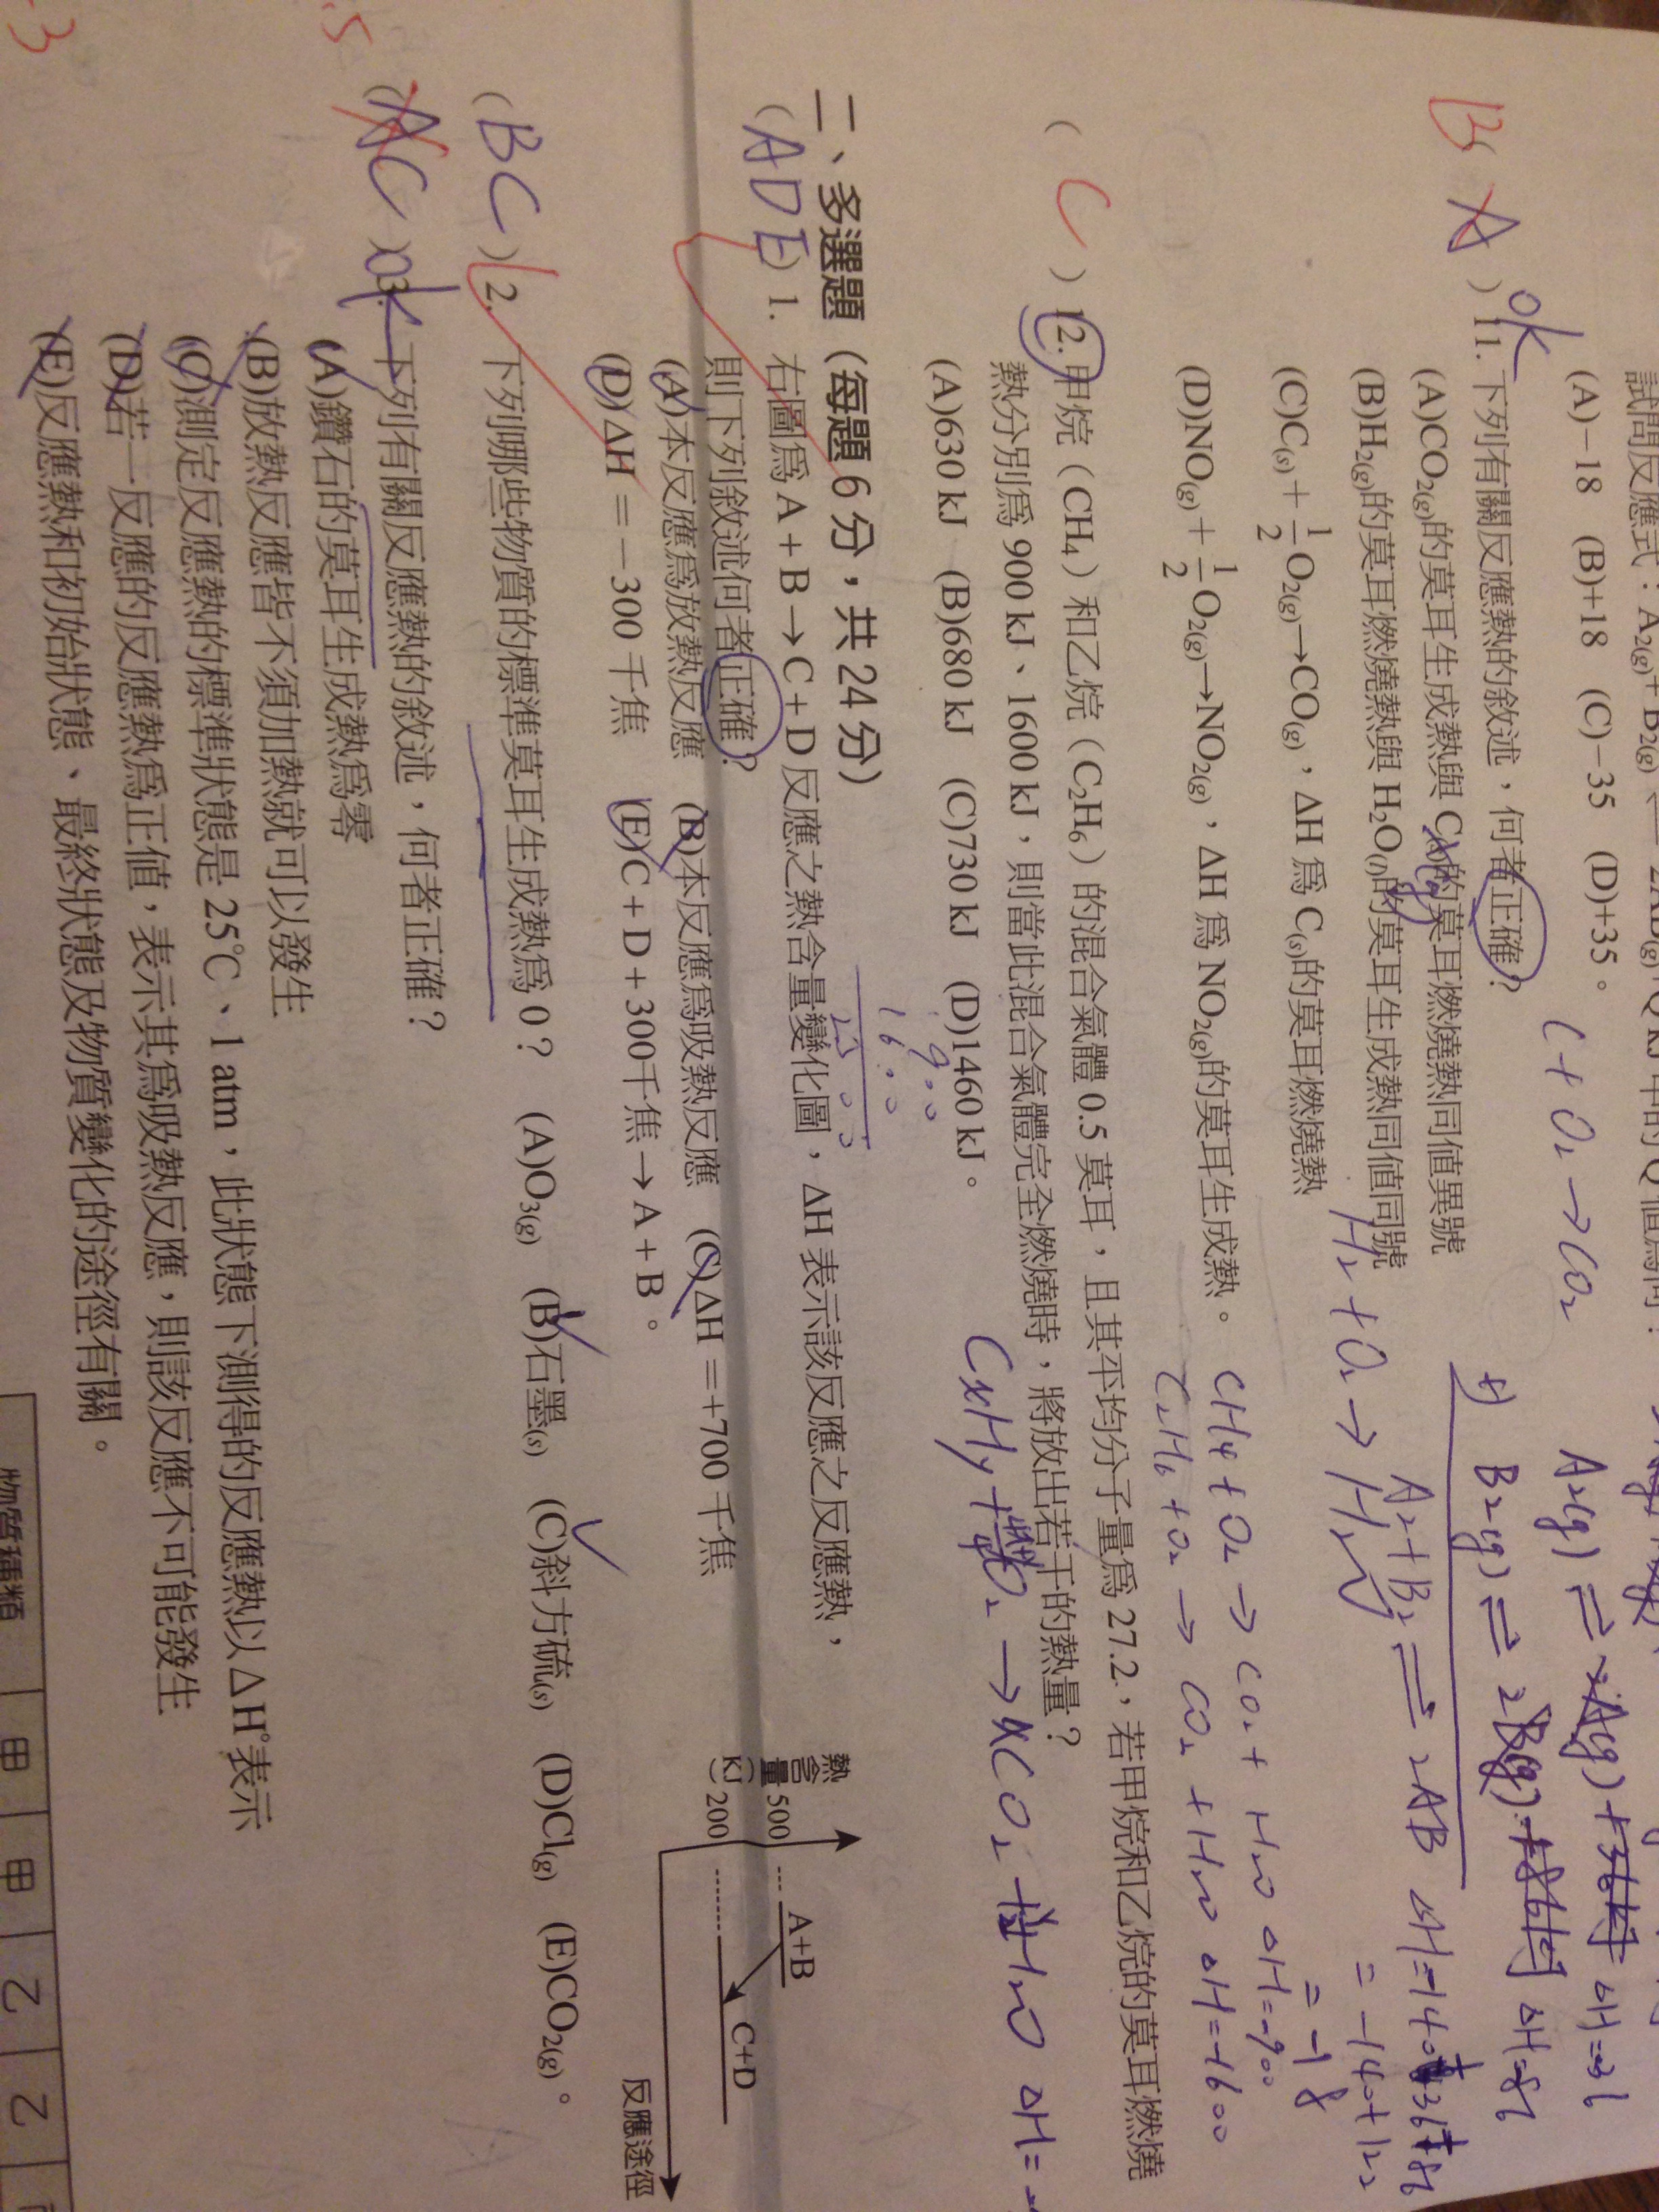 試問反應式：A₂(g)+B₂(g) ⇌ 2AB(g)+Q kJ 中的 Q 值為何？
(A)−18 (B)+18 (C)−35 (D)+35。
B A ) 11. 下列有關反應熱的敘述，何者正確？
ok
(A)CO₂(g)的莫耳生成熱與 C(s)的莫耳燃燒熱同值異號
(B)H₂(g)的莫耳燃燒熱與 H₂O(l)的莫耳生成熱同值同號
(C)C(s)+1/2O₂(g)→CO(g)，ΔH 為 C(s)的莫耳燃燒熱
(D)NO(g)+1/2O₂(g)→NO₂(g)，ΔH 為 NO₂(g)的莫耳生成熱。
( C ) 12. 甲烷（CH₄）和乙烷（C₂H₆）的混合氣體 0.5 莫耳，且其平均分子量為 27.2，若甲烷和乙烷的莫耳燃燒
熱分別為 900 kJ、1600 kJ，則當此混合氣體完全燃燒時，將放出若干的熱量？
(A)630 kJ (B)680 kJ (C)730 kJ (D)1460 kJ。
C + O₂ → CO₂
H₂ + O₂ → H₂O
A₂(g) ⇌ 2A(g) ΔH=36
+) B₂(g) ⇌ 2B(g) ΔH=86
A₂+B₂ ⇌ 2AB ΔH=-140+36+86
= -140+122
= -18
CH₄ + O₂ → CO₂ + H₂O ΔH=-900
C₂H₆ + O₂ → CO₂ + H₂O ΔH=-1600
CxHy + O₂ → xCO₂ + H₂O ΔH=-
900
1600
2500
二、多選題（每題 6 分，共 24 分）
(ADE) 1. 右圖為 A + B → C + D 反應之熱含量變化圖，ΔH 表示該反應之反應熱，
則下列敘述何者正確？
(A)本反應為放熱反應 (B)本反應為吸熱反應 (C)ΔH = +700 千焦
(D)ΔH = −300 千焦 (E)C + D + 300千焦 → A + B。
熱含量(KJ)
500
200
A+B
C+D
反應途徑
(BC) 2. 下列哪些物質的標準莫耳生成熱為 0？ (A)O₃(g) (B)石墨(s) (C)斜方硫(s) (D)Cl(g) (E)CO₂(g)。
(AC) 3. 下列有關反應熱的敘述，何者正確？
(A)鑽石的莫耳生成熱為零
(B)放熱反應皆不須加熱就可以發生
(C)測定反應熱的標準狀態是 25℃、1 atm，此狀態下測得的反應熱以 ΔH°表示
(D)若一反應的反應熱為正值，表示其為吸熱反應，則該反應不可能發生
(E)反應熱和初始狀態、最終狀態及物質變化的途徑有關。
物質種類 甲 甲 乙 乙